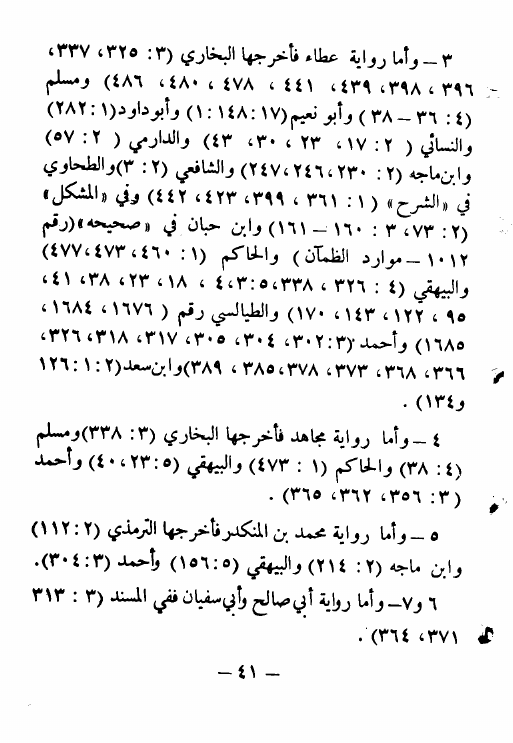 ٣ – وأما رواية عطاء فأخرجها البخاري (٣: ٣٢٥، ٣٣٧،
٣٩٦، ٣٩٨، ٤٣٩، ٤٤١، ٤٧٨، ٤٨٠، ٤٨٦) ومسلم
(٤: ٣٦ – ٣٨) وأبو نعيم (١٧: ١٤٨: ١) وأبو داود (١: ٢٨٢)
والنسائي (٢: ١٧، ٢٣، ٣٠، ٤٣) والدارمي (٢: ٥٧)
وابن ماجه (٢: ٢٣٠، ٢٤٦، ٢٤٧) والشافعي (٢: ٣) والطحاوي
في «الشرح» (١: ٣٦١، ٣٩٩، ٤٢٣، ٤٤٢) وفي «المشكل»
(٢: ٧٣، ٣: ١٦٠ – ١٦١) وابن حبان في «صحيحه» (رقم
١٠١٢ – موارد الظمآن) والحاكم (١: ٤٦٠، ٤٧٣، ٤٧٧)
والبيهقي (٤: ٣٢٦، ٣٣٨، ٥: ٣، ٤، ١٨، ٢٣، ٣٨، ٤١،
٩٥، ١٢٢، ١٤٣، ١٧٠) والطيالسي رقم (١٦٧٦، ١٦٨٤،
١٦٨٥) وأحمد (٣: ٣٠٢، ٣٠٤، ٣٠٥، ٣١٧، ٣١٨، ٣٢٦،
٣٦٦، ٣٦٨، ٣٧٣، ٣٧٨، ٣٨٥، ٣٨٩) وابن سعد (٢: ١: ١٢٦
و١٣٤).
٤ – وأما رواية مجاهد فأخرجها البخاري (٣: ٣٣٨) ومسلم
(٤: ٣٨) والحاكم (١: ٤٧٣) والبيهقي (٥: ٢٣، ٤٠) وأحمد
(٣: ٣٥٦، ٣٦٢، ٣٦٥).
٥ – وأما رواية محمد بن المنكدر فأخرجها الترمذي (٢: ١١٢)
وابن ماجه (٢: ٢١٤) والبيهقي (٥: ١٥٦) وأحمد (٣: ٣٠٤).
٦ و٧ – وأما رواية أبي صالح وأبي سفيان ففي المسند (٣: ٣١٣
٣٧١، ٣٦٤).
– ٤١ –